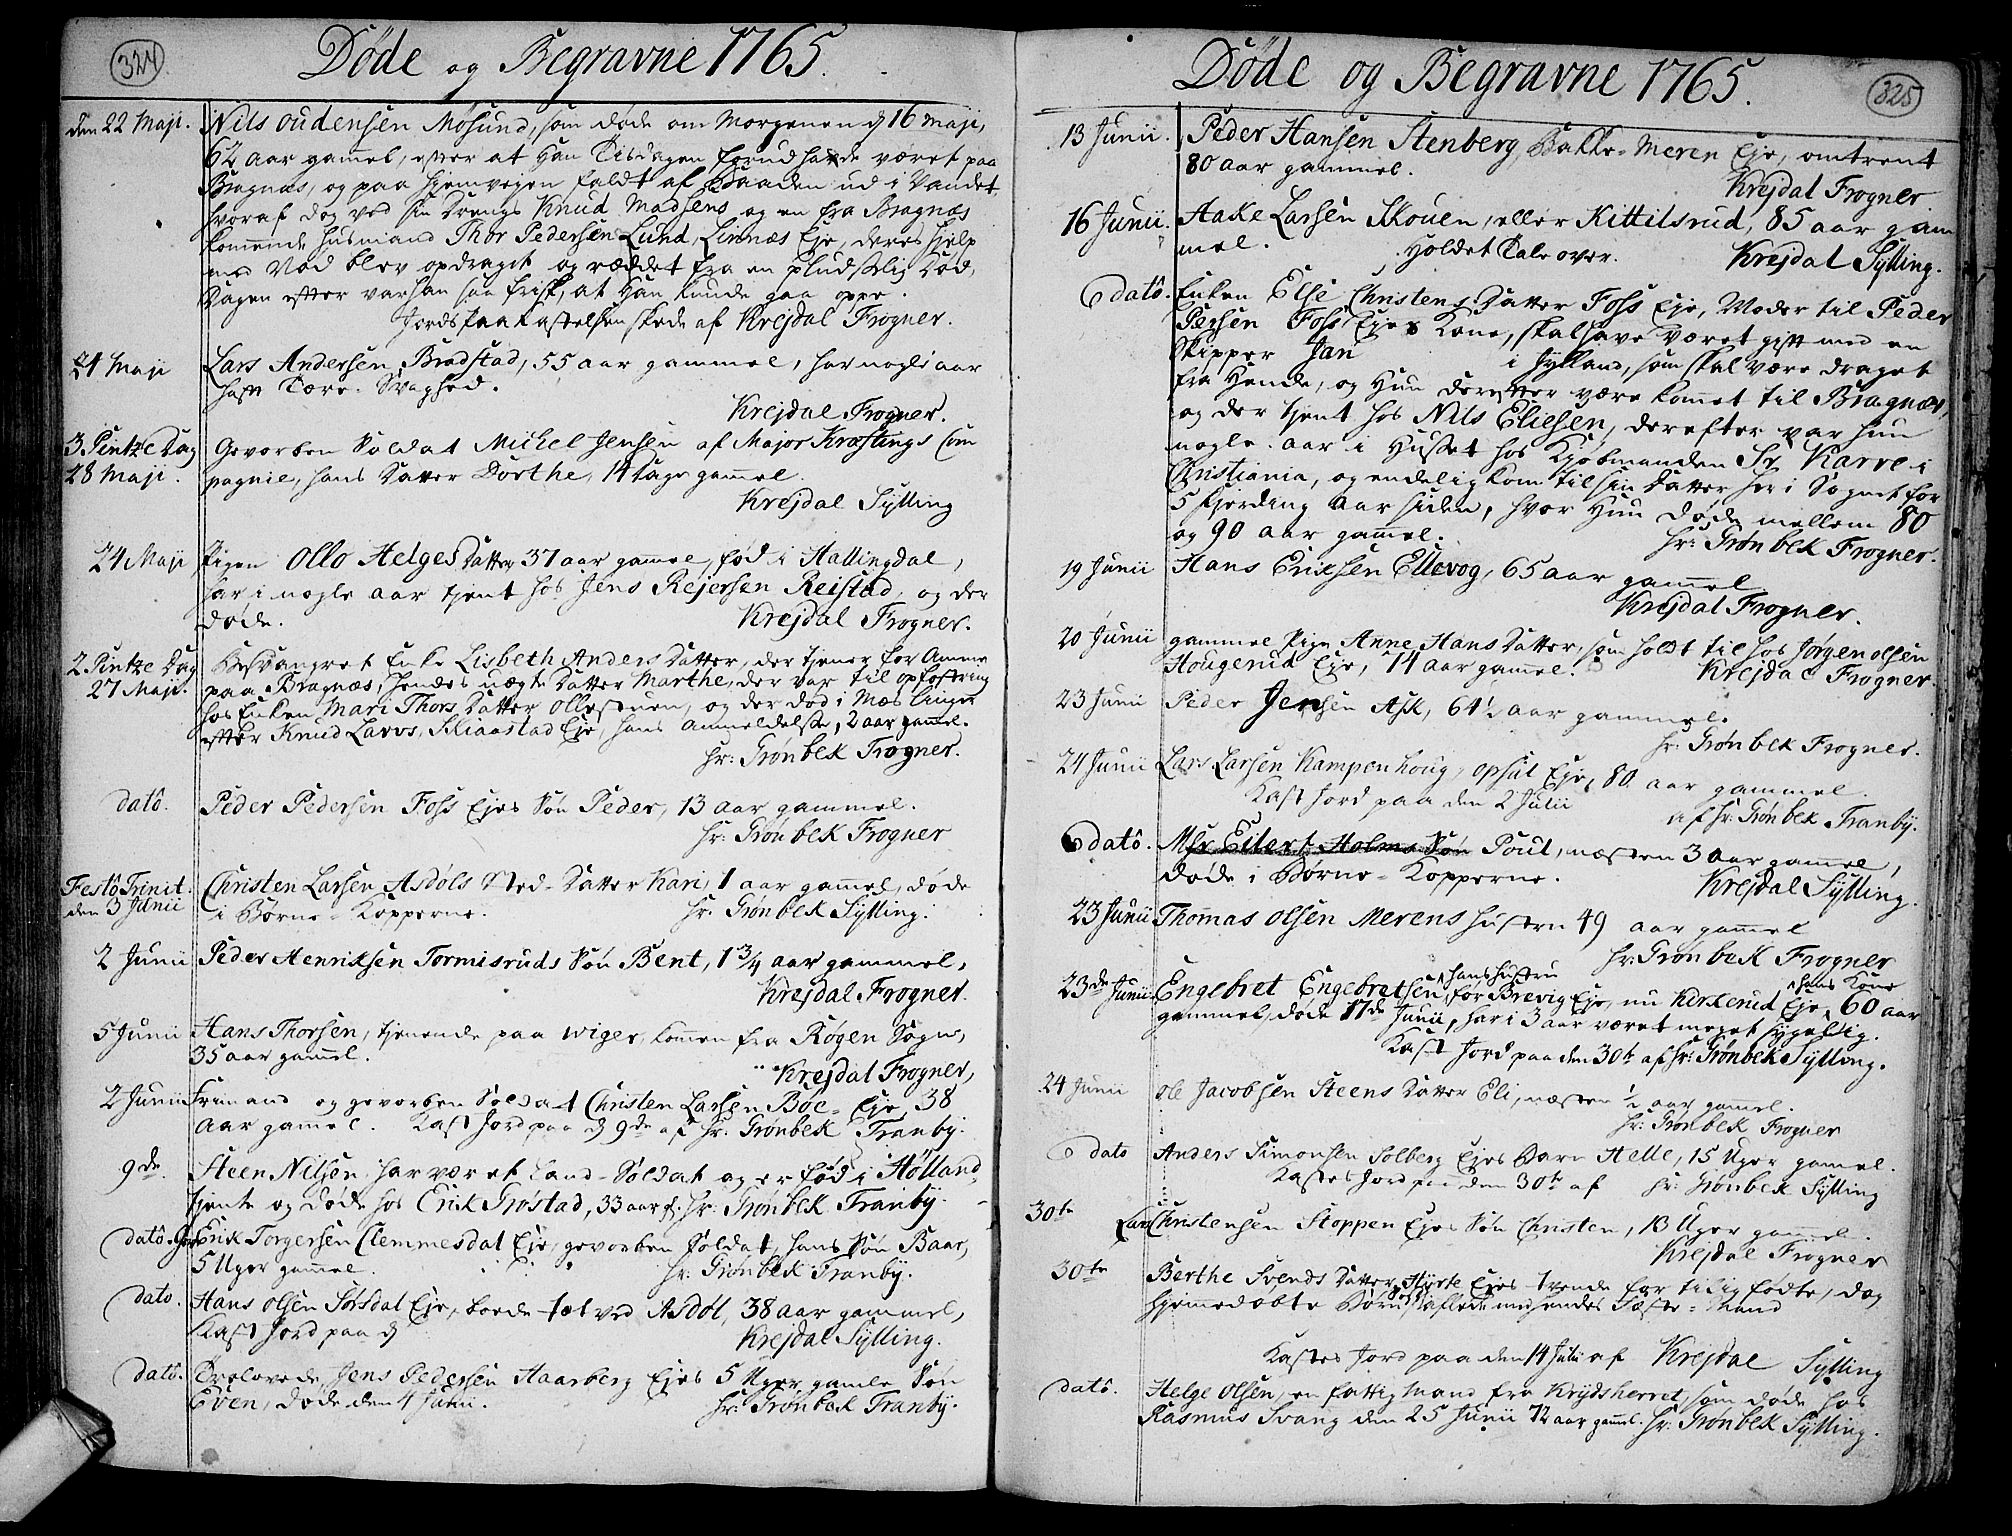 324
Døde og Begravne 1765.
den 22 Maji. Nils Oudensen Møsund, som døde om Morgenen d 16 Maji,
62 aar gammel, efter at Han Tisdagen forud hafde været paa
Bragnæs, og paa hjemvejen faldt af Baaden ud i Vandet,
hvoraf dog ved sin Drengs Knud Madsens og en fra Bragnæs
kommende Husmand Thor Pedersen Lund, Linnæs Eje, deres hjelp
med Vod blev opdraget og reddet fra en pludselig Død,
Dagen efter var han saa frisk, at Han kunde gaa oppe.
Jords paakastelsen skede af Krejdal Frogner.
24 Maji Lars Andersen Bradstad, 55 aar gammel, har nogle aar
haft Tære-Svaghed.
Krejdal Frogner.
3 Pintze Dag Gevorben Soldat Michel Jensen af Major Kræftings Com
28 Maji. pagnie, hans Datter Dorthe, 14 Dage gamel.
Krejdal Sylling
24 Maji Pigen Ollo Helges Datter 37 aar gamel, fød i Hallingdal,
har i nogle aar tjent hos Jens Rejersen Reistad, og der
døde.
Krejdal Frogner.
2 Pintze Dag Besvangret Enke Lisbeth Anders Datter, der tjener for Amme
27 Maji. paa Bragnæs, hendes uægte Datter Marthe, der var til opfostring
hos Enken Mari Thors Datter Ollestuen, og der død i Mæslinger
efter Knud Lavos, Skiaastad Eje, hans anmeldelse, 2 aar gamel.
hr: Grønbek Frogner.
dato. Peder Pedersen Foss Ejes Søn Peder, 13 aar gammel.
hr: Grønbek Frogner
Festo Trinit. Christen Larsen Asdøls Sted-Datter Kari, 1 aar gamel, døde
den 3 Junii i Børne-Kopperne. hr: Grønbek Sylling.
2 Junii Peder Henriksen Tormisruds Søn Bent, 1 3/4 aar gammel,
Krejdal Frogner.
5 Junii Hans Thorsen, tjenende paa Wiger, kommen fra Røgen Sogn,
35 aar gamel.
Krejdal Frogner,
2 Junii Frimand og gevorben Soldat Christen Larsen Bøe-Eje, 38
aar gamel. Kast Jord paa d 9de af hr: Grønbek Tranby.
9de. Steen Nilsen, har været Land-Soldat og er fød i Hølland,
tjente og døde hos Erik Grøstad, 33 aar g. hr: Grønbek Tranby.
dato. Erik Torgersen Clemmesdal Eje, gevorben Soldat, hans Søn Baar,
5 Uger gamel. hr: Grønbek Tranby.
dato. Hans Olsen Sørsdal Eje, boede tæt ved Asdøl, 38 aar gammel,
Kast Jord paa d Krejdal Sylling.
dato. Trolovede Jens Pedersen Haarberg Ejes 5 Uger gamle Søn
Even, døde den 4 Junii. hr: Grønbek Tranby.
325
Døde og Begravne 1765.
13 Junii. Peder Hansen Stenberg, Bakke-Meren Eje, omtrent
80 aar gammel.
Krejdal Frogner
16 Junii. Aake Larsen Skouen, eller Kittilsrud, 85 aar gam
mel. Holdet Tale over. Krejdal Sylling.
dato. Enken Else Christens Datter Foss Eje, Moder til Peder
Persen Foss Ejes Kone, skal have været gift med en
Skipper Jan i Jylland, som skal være draget
fra Hende, og Hun derefter være komet til Bragnæs,
og der tjent hos Nils Eliesen, derefter var hun
nogle aar i Huset hos Kjøbmanden Sr. Karre i
Christiania, og endelig kom til sin Datter her i Sognet for
5 fjerding aar siden, hvor Hun døde mellem 80
og 90 aar gamel.
hr: Grønbek Frogner.
19 Junii Hans Eriksen Ellevog, 65 aar gamel
Krejdal Frogner.
20 Junii gammel Pige Anne Hans Datter, som holdt til hos Jørgen Olsen
Hougerud Eje, 74 aar gamel. Krejdal Frogner.
23 Junii Peder Jensen Ask, 64 1/2 aar gammel.
hr: Grønbek Frogner.
24 Junii Lars Larsen Kampenhoug, Opsal Eje, 80 aar gammel.
Kast Jord paa den 2 Julii
af hr: Grønbek Tranby.
dato. Msr Eilert Holms Søn Poul, næsten 3 aar gamel,
døde i Børne-Kopperne.
Krejdal Sylling.
23 Junii Thomas Olsen Merens Hustru 49 aar gamel
hr: Grønbek Frogner
hans hustru hans Kone
23de Junii. Engebret Engebretsen, før Brevig Eje, nu Kirkerud Eje, 60 aar
gammel, døde 17de Junii, har i 3 aar været meget sygelig.
Kast Jord paa den 30te af hr: Grønbek Sylling.
24 Junii Ole Jacobsen Steens Datter Eli, næsten 1/2 aar gamel.
hr: Grønbek Frogner
dato Anders Simonsen Solberg Ejes Barn Helle, 15 Uger gamel.
Kastes Jord paa den 30te af hr: Grønbek Sylling
30te Lars Christensen Stoppen Ejes Søn Christen, 13 Uger gamel.
Krejdal Frogner
30te Berthe Svends Datter, Ejes tvende for tidlig fødte, dog
hjemedøbte Børn, aflede med hendes Fæste-Mand
Kastes Jord paa den 14 Julii af Krejdal Sylling
dato. Helge Olsen, en fattig Mand fra Krydsherret, som døde hos
Rasmus Svang den 25 Junii 72 aar gamel. hr: Grønbek Sylling.